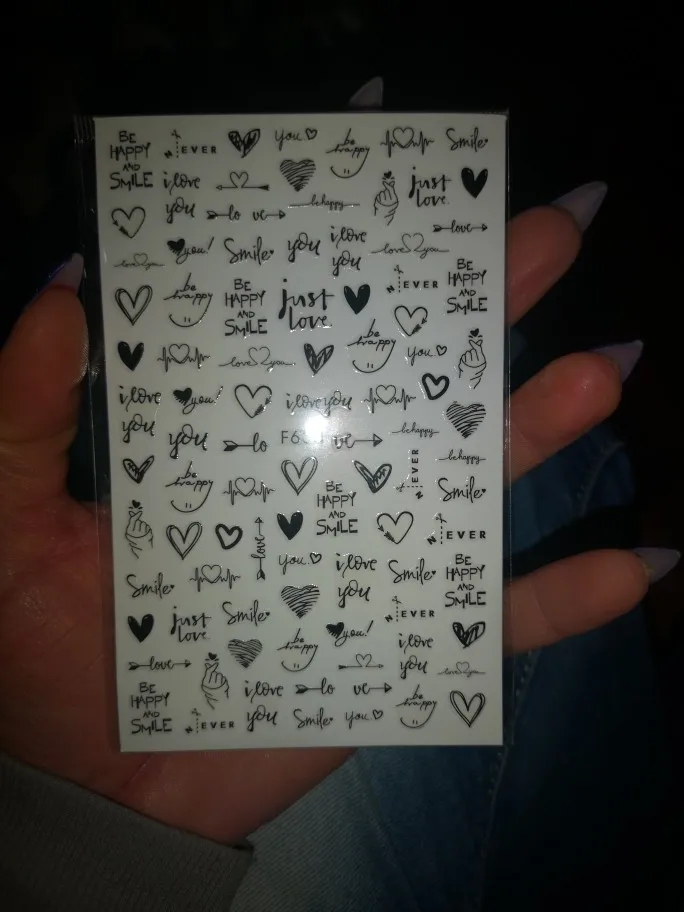 BE HAPPY AND SMILE
NEVER
you
be happy
Smile
i love you
just love
lo ve
be happy
love
love you
you!
Smile
you
i love you
love you
be happy
BE HAPPY AND SMILE
just love
NEVER
BE HAPPY AND SMILE
love you
be happy
you
i love you
you!
i love you
you
lo
F6
ve
be happy
be happy
be happy
BE HAPPY AND SMILE
NEVER
Smile
love
NEVER
you
i love you
Smile
BE HAPPY AND SMILE
Smile
just love
Smile
NEVER
be happy
you!
i love you
love
love you
BE HAPPY AND SMILE
NEVER
i love you
lo ve
Smile
you
be happy